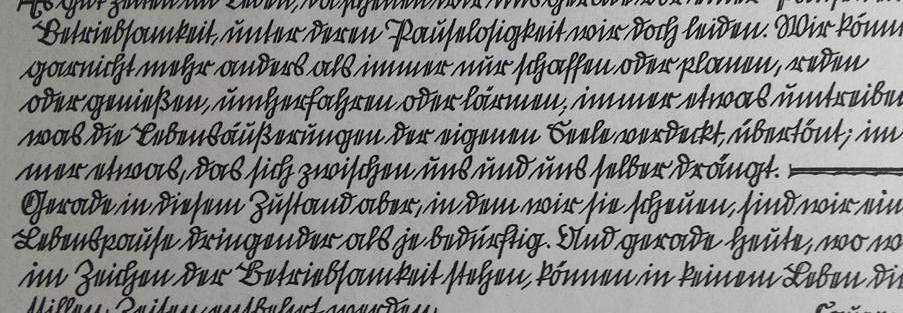 Es gibt Zeiten im Leben, da scheuen wir uns gerade vor einer
Betriebsamkeit, unter deren Pauselosigkeit wir doch leiden. Wir könn
garnicht mehr anders als immer nur schaffen oder planen, reden
oder genießen, umherfahren oder lärmen, immer etwas umtreibe
was die Lebensäußerungen der eigenen Seele verdeckt, übertönt; im
mer etwas, das sich zwischen uns und uns selber drängt.
Gerade in diesem Zustand aber, in dem wir sie scheuen, sind wir ein
Lebenspause dringender als je bedürftig. Und gerade heute, wo w
im Zeichen der Betriebsamkeit stehen, können in keinem Leben die
stillen Zeiten entbehrt werden.